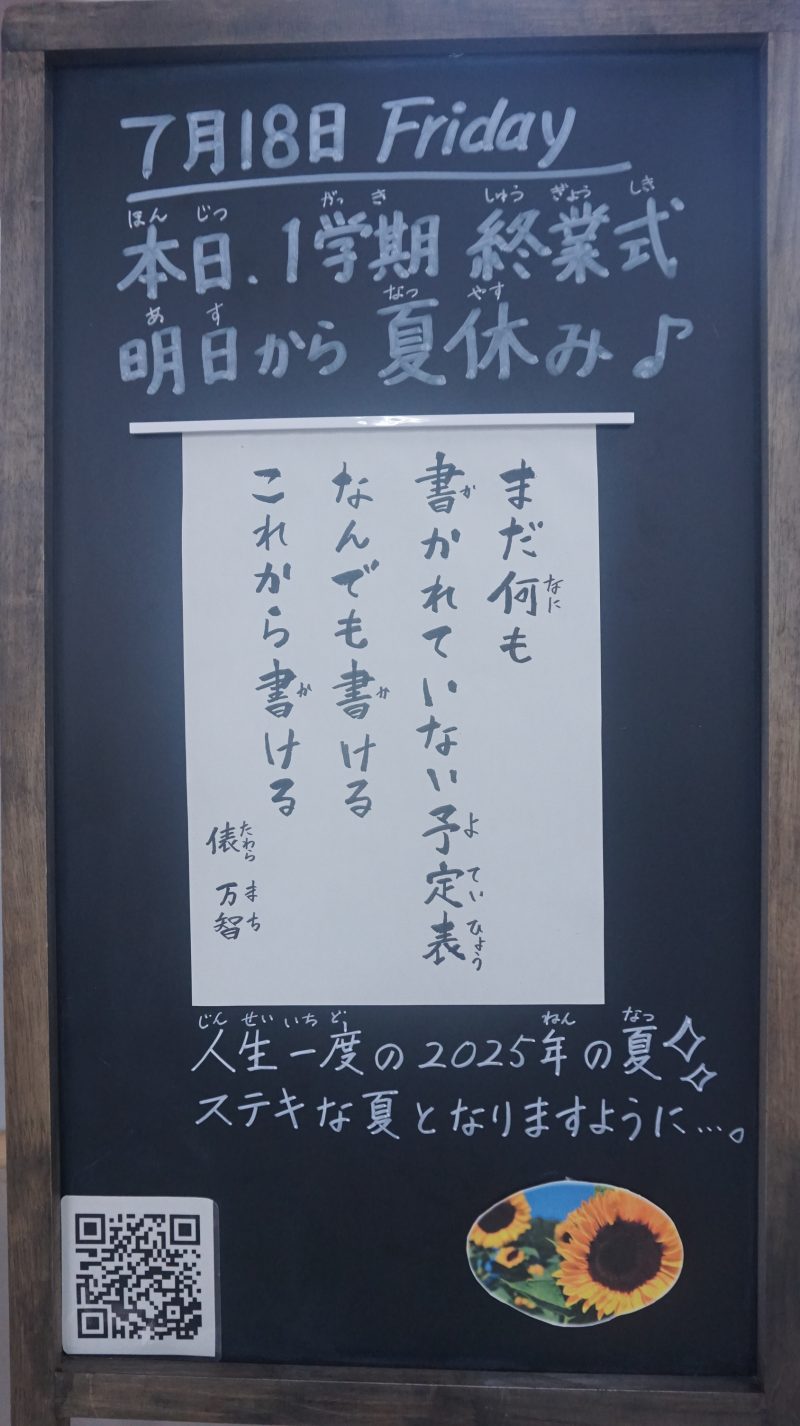 7月18日 Friday
本日、1学期 終業式
明日から 夏休み♪
まだ何も
書かれていない予定表
なんでも書ける
これから書ける
俵 万智
人生一度の2025年の夏
ステキな夏となりますように…。